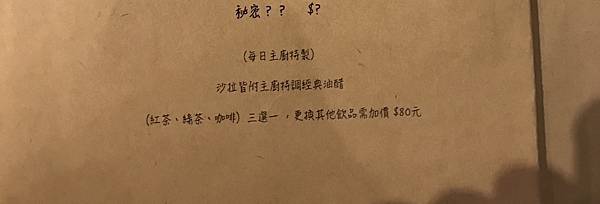 秘密？？ $？
(每日主廚特製)
沙拉皆附主廚特調經典油醋
(紅茶、綠茶、咖啡) 三選一，更換其他飲品需加價 $80元